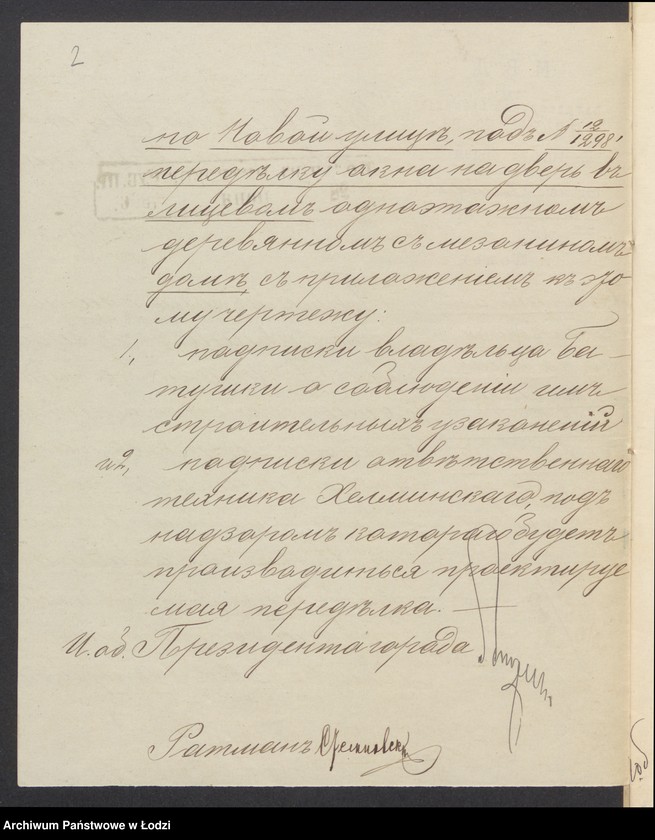 2
на Новой улицѣ, подъ № 12/1298,
передѣлку окна на дверь въ
лицевомъ одноэтажномъ
деревянномъ съ мезониномъ
домѣ, съ приложеніемъ къ это-
му чертежу:
1, подписки владѣльца Ба-
тушки о соблюденіи имъ
строительныхъ узаконеній
и 2, подписки отвѣтственнаго
техника Хелминскаго, подъ
надзоромъ котораго будетъ
производиться проектируе
мая передѣлка.
И. об. Президента города
Ратманъ
Archiwum Państwowe w Łodzi